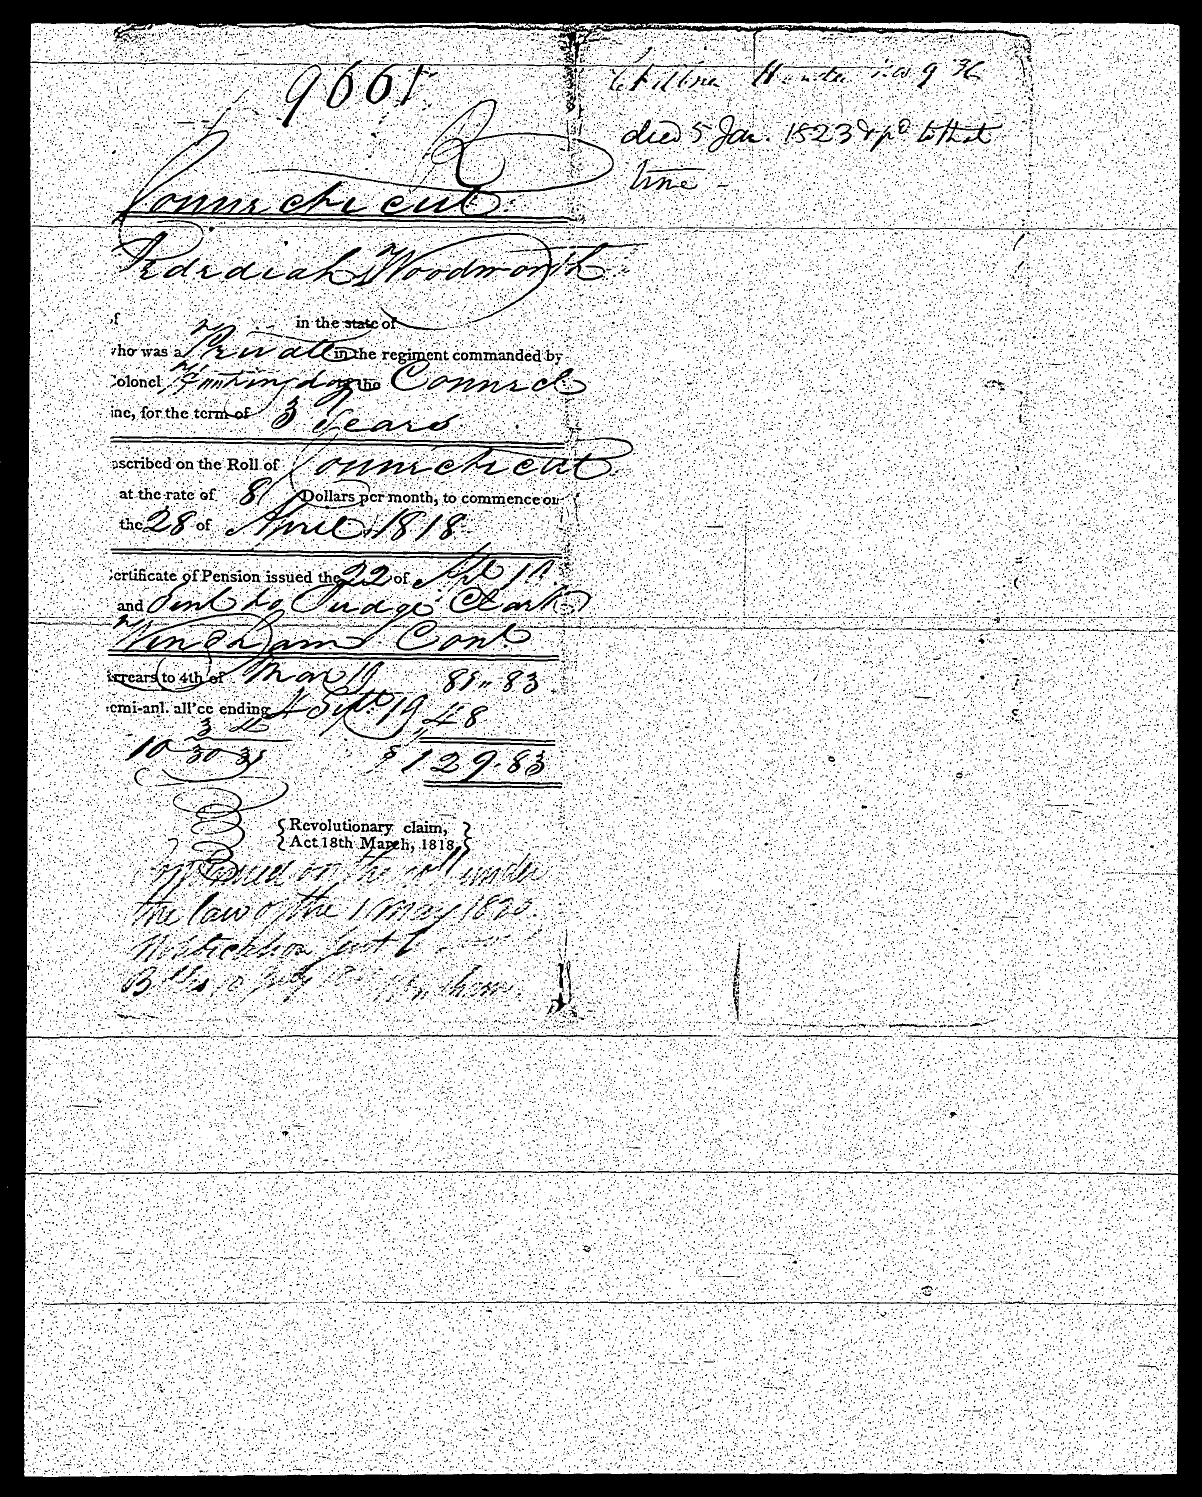 9661
died 5 Jan. 1823 & pd to that
time -
Connecticut
Jedediah Woodworth
of in the state of
who was a Private in the regiment commanded by
Colonel Huntingdon the Connect
ine, for the term of 3 years
nscribed on the Roll of Connecticut
at the rate of 8 Dollars per month, to commence on
the 28 of April 1818
ertificate of Pension issued the 22 of
and Sent to Judge Clark
Windham Cont
rrears to 4th of Mar 19 81.83
emi-anl. all'ce ending 4 Sept 19 48
$129.83
Revolutionary claim,
Act 18th March, 1818.
on the roll under
the law of the 1 May 1820.
Notification sent